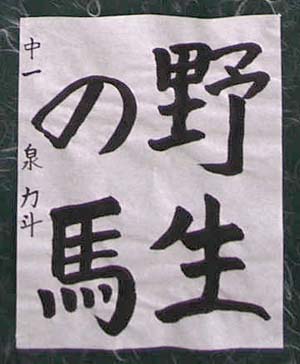 野生
の馬
中一 泉力斗